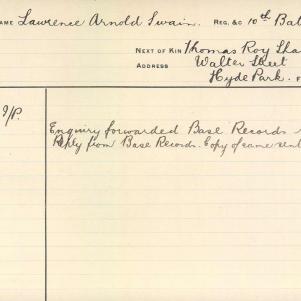 AME Lawrence Arnold Swain. REG. &C 10th Bat
NEXT OF KIN Thomas Roy
ADDRESS Walter Street
Hyde Park.
Enquiry forwarded Base Records
Reply from Base Records. Copy of same sent